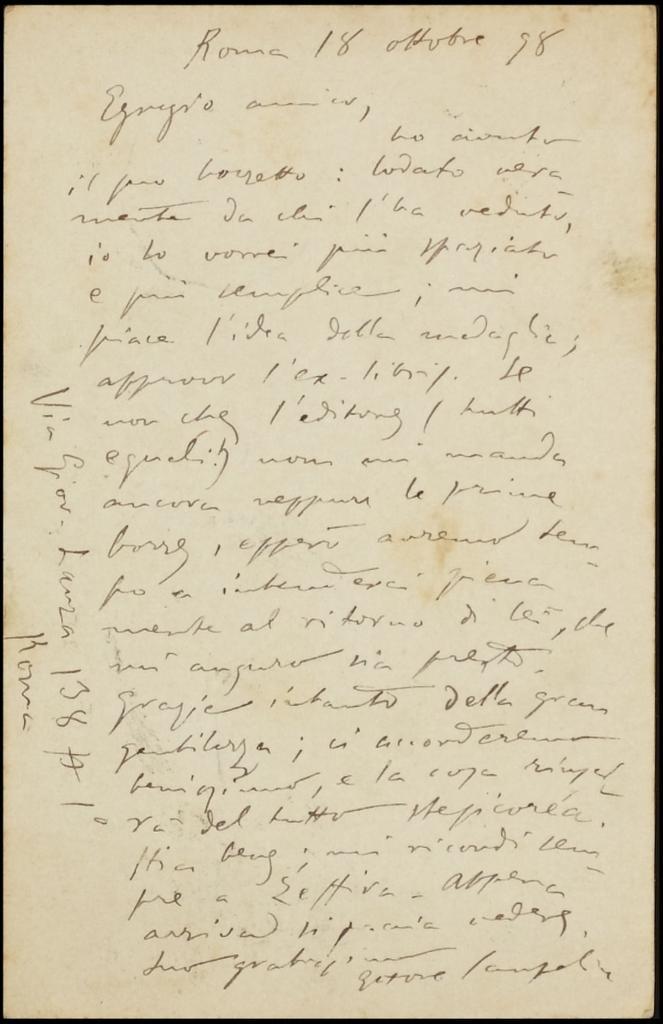 Roma 18 ottobre 98
Egregio amico,
ho avuto
il suo bozzetto: lodato vera
mente da chi l'ha veduto,
io lo vorrei più spaziato
e più semplice; mi
piace l'idea della medaglia;
approvo l'ex-libris. Se
non che l'editore (tutti
eguali!) non mi manda
ancora neppure le prime
bozze, epperò avremo tem-
po a intenderci piena
mente al ritorno di lei, che
mi auguro sia presto.
Grazie intanto della gran
gentilezza; ci accorderemo
benissimo, e la cosa
rà del tutto
Stia bene; mi ricordi sem-
pre a Appena
arriva si faccia vedere.
Suo
Ettore
Via Giov. Lanza 138
Roma